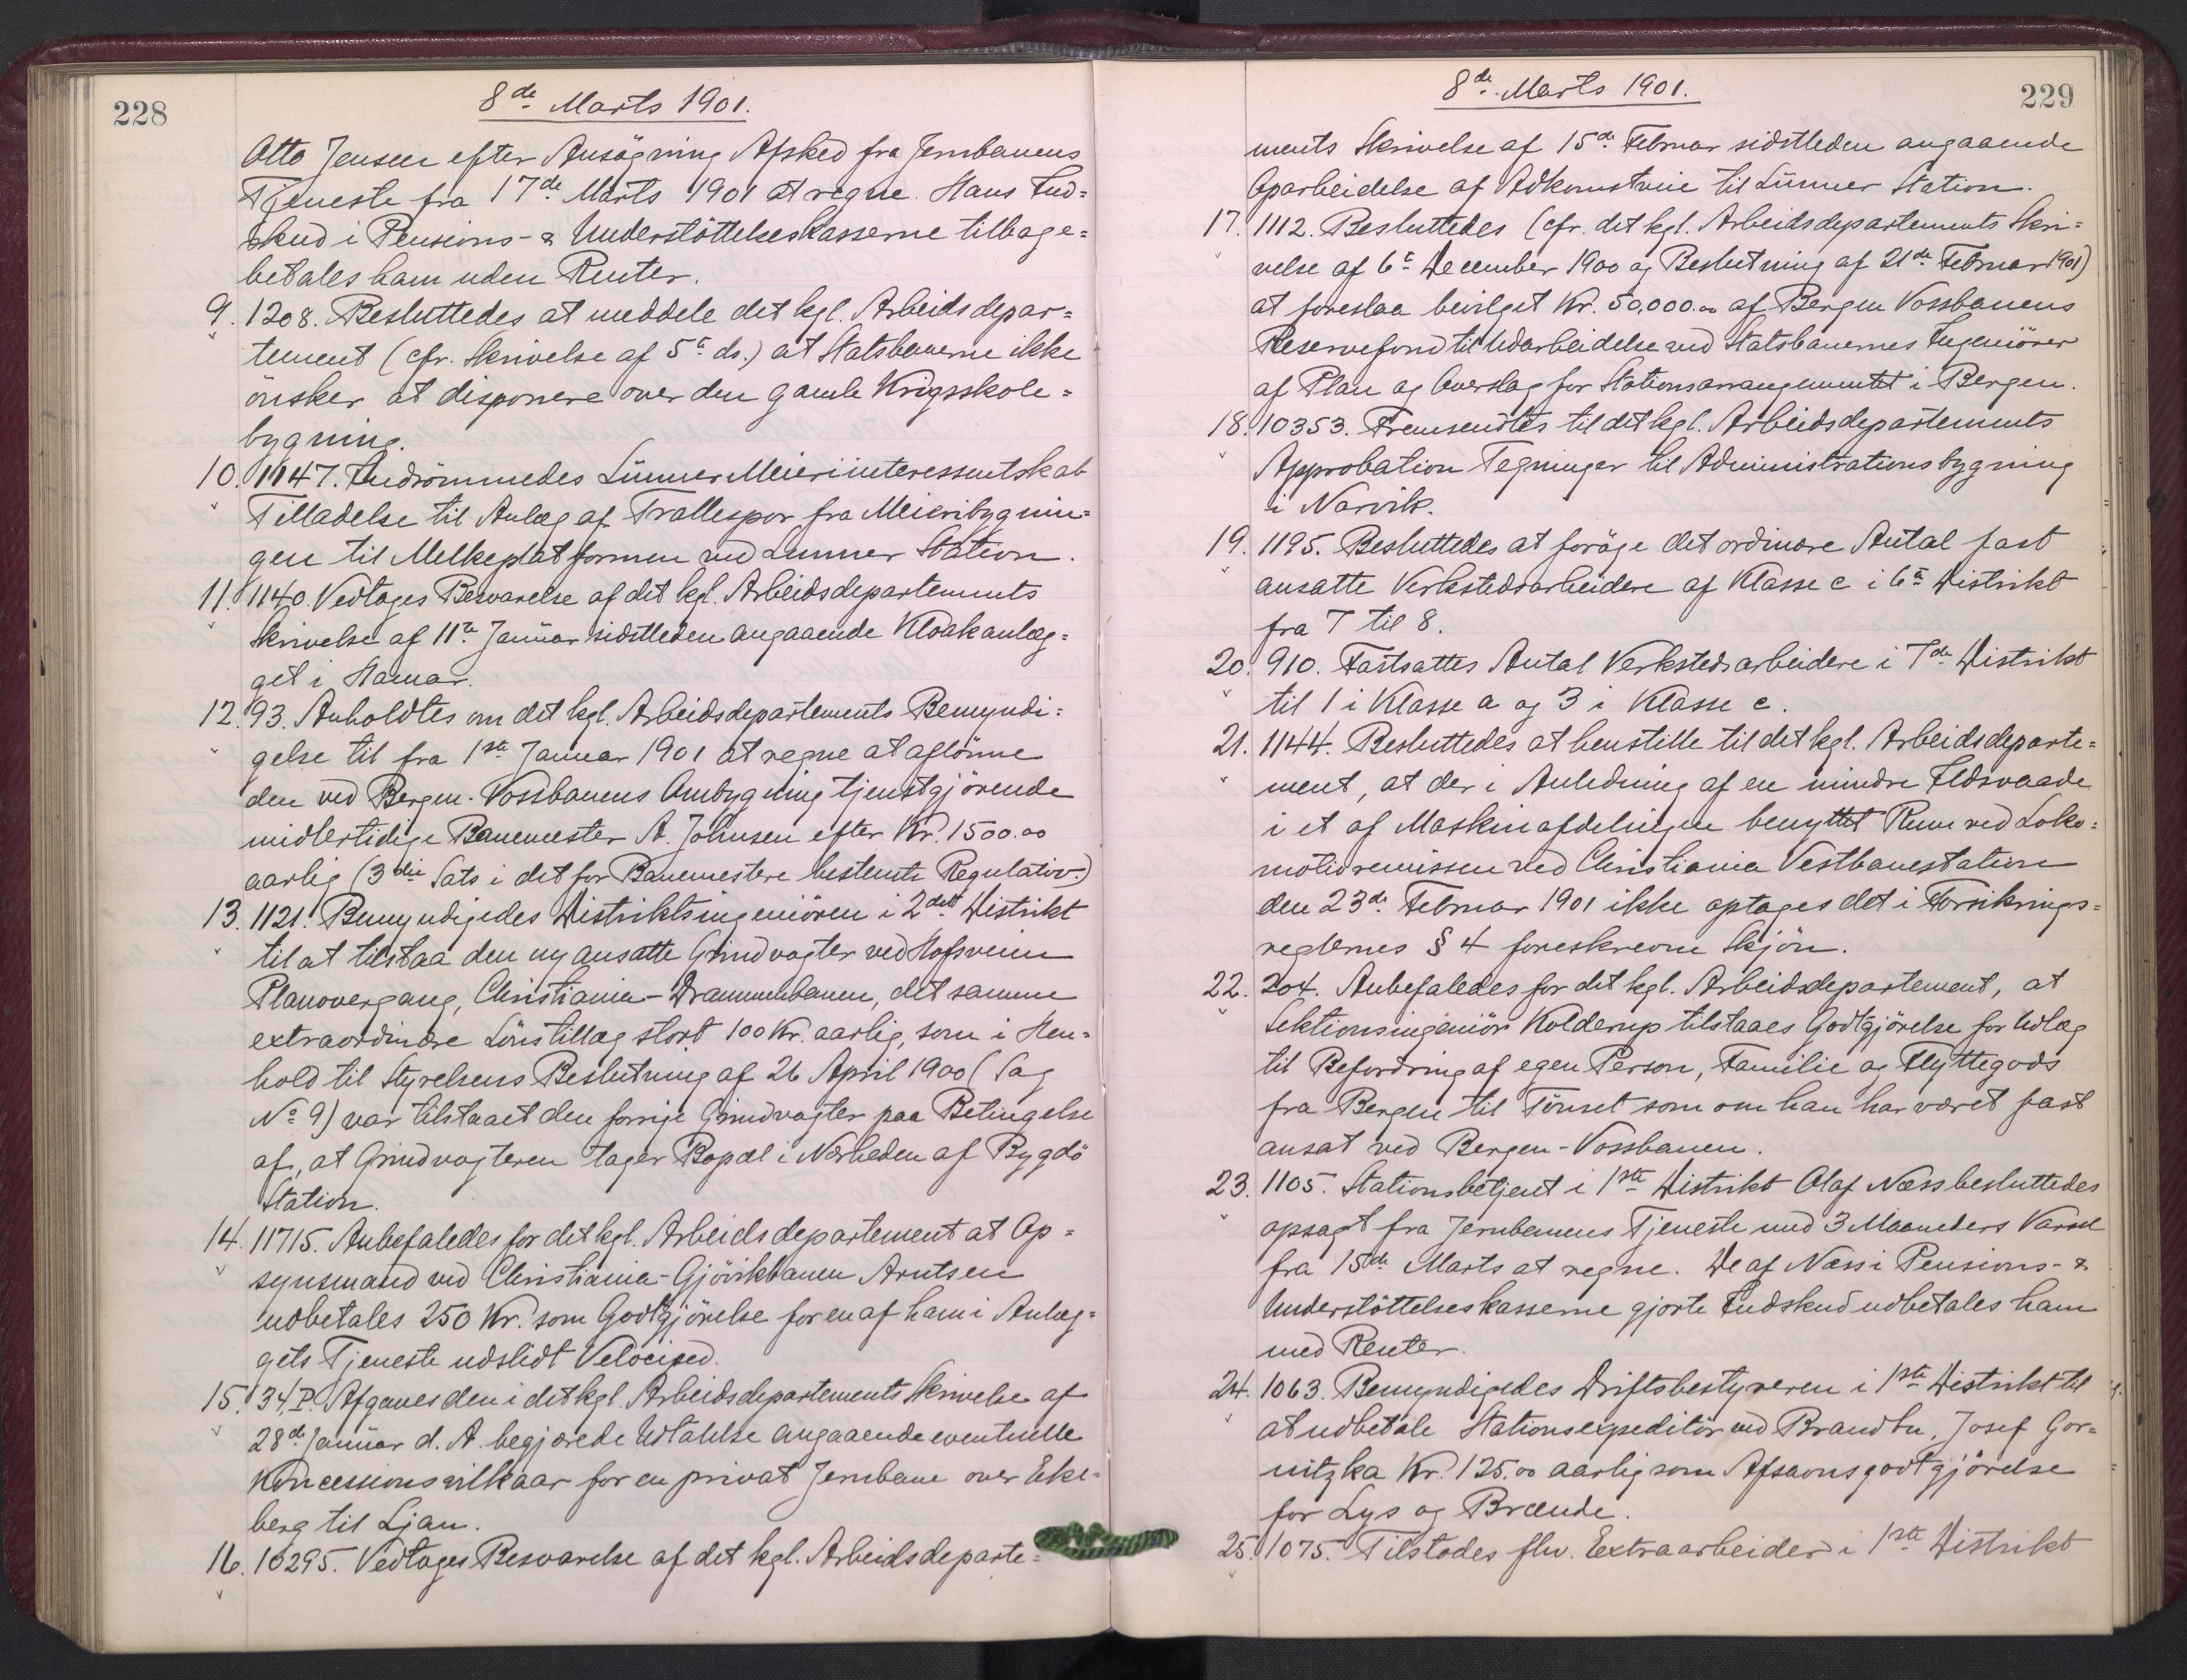 228
8de Marts 1901.
Otto Jensen efter Ansögning Afsked fra Jernbanens
Tjeneste fra 17de Marts 1901 at regne. Hans Ind=
skud i Pensions- & Understöttelseskasserne tilbage=
betales ham uden Renter.
9. 1208. Besluttedes at meddele det kgl. Arbeidsdepar=
tement (cfr. Skrivelse af 5te ds.) at Statsbanerne ikke
önsker at disponere over den gamle Krigsskole=
bygning.
10. 1147. Indrömmedes Lunner Meieriinteressentskab
Tilladelse til Anlæg af Trallespor fra Meieribygnin=
gen til Melkeplatformen ved Lunner Station.
11. 1140. Vedtoges Besvarelse af det kgl. Arbeidsdepartements
Skrivelse af 11te Januar sidstleden angaaende Kloakanlæg=
get i Hamar.
12. 93. Anholdtes om det kgl. Arbeidsdepartements Bemyndi=
gelse til fra 1ste Januar 1901 at regne at aflönne
den ved Bergen-Vossbanens Ombygning tjenstgjörende
midlertidige Banemester A. Johnsen efter Kr. 1500.00
aarlig (3die Sats i det for Banemestere bestemte Regulativ.)
13. 1121. Bemyndigedes Distriktsingeniören i 2det Distrikt
til at tilstaa den ny ansatte Grindvogter ved Hofsveien
Planovergang, Christiania-Drammenbanen, det samme
extraordinære Lönstillæg stort 100 Kr. aarlig, som i Hen=
hold til Styrelsens Beslutning af 26 April 1900 (Sag
No 9) var tilstaaet den forrige Grindvogter paa Betingelse
af, at Grindvogteren tager Bopæl i Nærheden af Bygdö
Station.
14. 11715. Anbefaledes for det kgl. Arbeidsdepartement at Op=
synsmand ved Christiania-Gjövikbanen Arntsen
udbetales 250 Kr. som Godtgjörelse for en af ham i Anlæg=
gets Tjeneste udslidt Velociped.
15. 34 P. Afgaves den i det kgl. Arbeidsdepartements Skrivelse af
28de Januar d. A. begjærede Udtalelse angaaende eventuelle
Koncessionsvilkaar for en privat Jernbane over Eke=
berg til Ljan.
16. 10295. Vedtoges Besvarelse af det kgl. Arbeidsdeparte=
8de Marts 1901.
229
ments Skrivelse af 15de Februar sidstleden angaaende
Oparbeidelse af Adkomstveie til Lunner Station.
17. 1112. Besluttedes (cfr. det kgl. Arbeidsdepartements Skri=
velse af 6te December 1900 og Beslutning af 21de Februar 1901)
at foreslaa bevilget Kr. 50,000.00 af Bergen Vossbanens
Reservefond til Udarbeidelse ved Statsbanernes Ingeniörer
af Plan og Overslag for Stationsarrangementet i Bergen.
18. 10353. Fremsendtes til det kgl. Arbeidsdepartements
Approbation Tegninger til Administrationsbygning
i Narvik.
19. 1195. Besluttedes at foröge det ordinære Antal fast
ansatte Verkstedsarbeidere af Klasse c i 6te Distrikt
fra 7 til 8.
20. 910. Fastsattes Antal Verkstedsarbeidere i 7de Distrikt
til 1 i Klasse a og 3 i Klasse c.
21. 1144. Besluttedes at henstille til det kgl. Arbeidsdeparte=
ment, at der i Anledning af en mindre Ildsvaade
i et af Maskinafdelingen benyttet Rum ved Loko=
motivremissen ved Christiania Vestbanestation
den 23de Februar 1901 ikke optages det i Forsikrings=
reglernes § 4 foreskrevne Skjön.
22. 204. Anbefaledes for det kgl. Arbeidsdepartement, at
Sektionsingeniör Kolderup tilstaaes Godtgjörelse for Udlæg
til Befordring af egen Person, Familie og Flyttegods
fra Bergen til Tönset som om han har været fast
ansat ved Bergen-Vossbanen.
23. 1105. Stationsbetjent i 1ste Distrikt Olaf Næss besluttedes
opsagt fra Jernbanens Tjeneste med 3 Maaneders Varsel
fra 15de Marts at regne. De af Næss i Pensions- &
Understöttelseskasserne gjorte Indskud udbetales ham
med Renter.
24. 1063. Bemyndigedes Driftsbestyreren i 1ste Distrikt til
at udbetale Stationsexpeditör ved Brandbu, Josef Gor=
nitzka Kr. 125.00 aarlig som Afsavnsgodtgjörelse
for Lys og Brænde.
25. 1075. Tilstodes flv. Extraarbeider i 1ste Distrikt